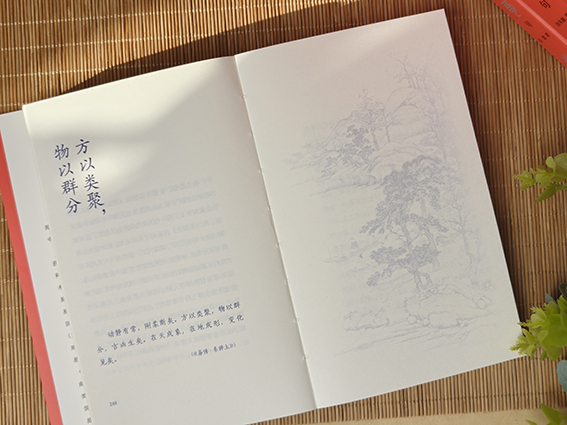 方以类聚，
物以群分
动静有常，刚柔断矣。方以类聚，物以群
分，吉凶生矣。在天成象，在地成形，变化
见矣。
（《易传·系辞上》）